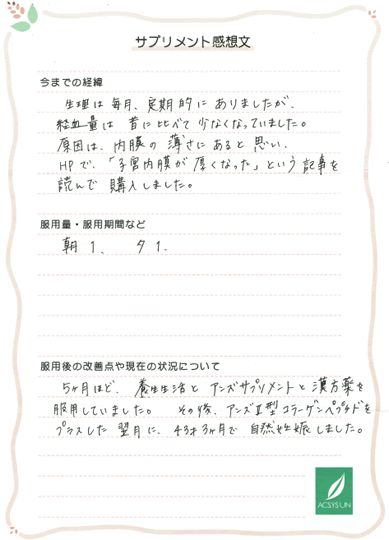 サプリメント感想文
今までの経緯
生理は毎月、定期的にありましたが、
経血量は昔に比べて少なくなっていました。
原因は、内膜の薄さにあると思い、
HPで、「子宮内膜が厚くなった」という記事を
読んで購入しました。
服用量・服用期間など
朝1、夕1.
服用後の改善点や現在の状況について
5ヶ月ほど、養生生活とアンズサプリメントと漢方薬を
服用していました。その後、アンズⅡ型コラーゲンペプチドを
プラスした翌月に、43才3ヶ月で自然妊娠しました。
ACSYSUN